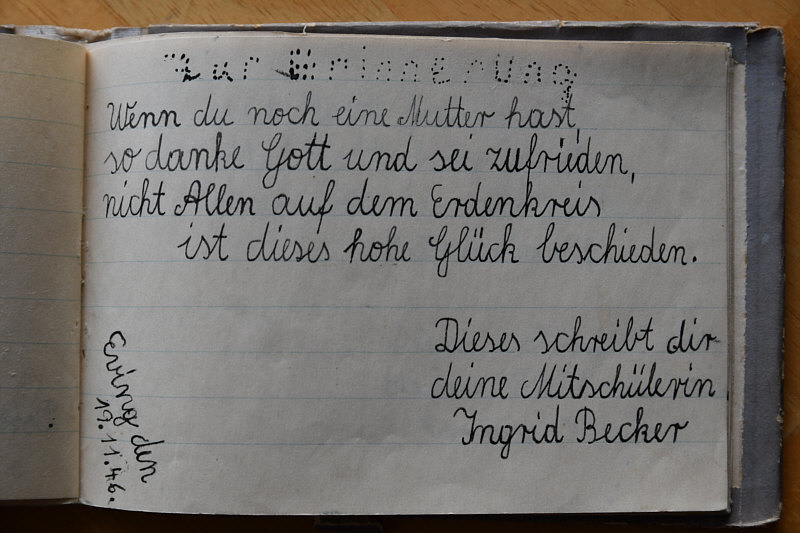 Zur Erinnerung
Wenn du noch eine Mutter hast,
so danke Gott und sei zufrieden,
nicht Allen auf dem Erdenkreis
ist dieses hohe Glück beschieden.
Dieses schreibt dir
deine Mitschülerin
Ingrid Becker
Eving den
19.11.46.